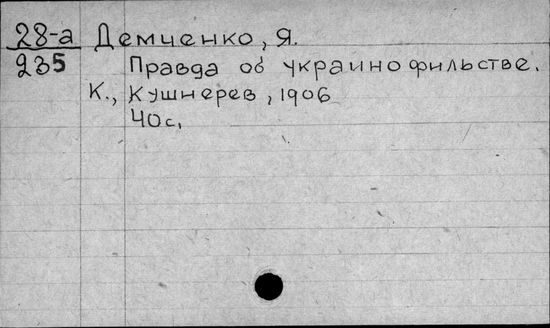 28-а Демченко, Я.
235 Правда об украинофильстве.
К., Кушнерев, 1906
40с,